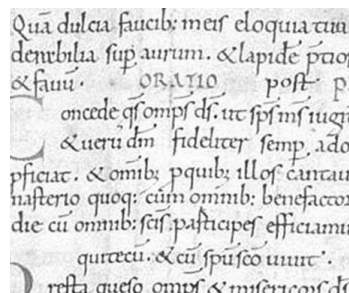 Quā dulcia faucib; meis eloquia tua
desirabilia sup̄ aurum. & lapidē p̄tio
& fauū. ORATIO post p
Concede q̄s omp̄s d̄s. ut sp̄s n̄s iugi
& uerū dm̄ fideliter semp̄ ado
p̄ficiat. & omib; p quib; illos cantau
nasterio quoq; cum omnib; benefactor
die cū omnib; sc̄is participes efficiamur
qui tecū. & cū spū sc̄o uiuit.
resta queso omp̄s & misericors d̄s